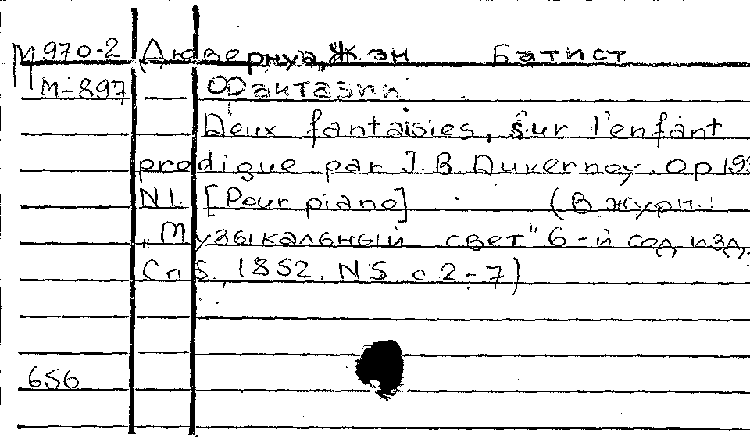 М970-2 Дювернуа, Жан Батист
М-897 Фантазии
Deux fantaisies, sur l'enfant
prodigue par J. B. Duvernoy. Op 193
N1. [Pour piano] (В журн.:
„Музыкальный свет" 6-й год изд.
Спб. 1852. N5 с 2-7)
656